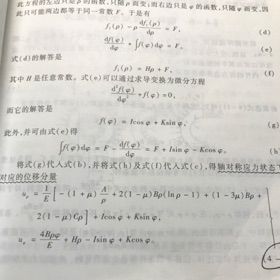 此方程的左边只是ρ的函数,只随ρ而变;而右边只是φ的函数,只随φ而变,因
此只可能两边都等于同一常数F。于是有
f₁(ρ) - ρ df₁(ρ)/dρ = F, (d)
df(φ)/dφ + ∫f(φ)dφ = F, (e)
式(d)的解答是
f₁(ρ) = Hρ + F, (f)
其中H是任意常数。式(e)可以通过求导变换为微分方程
d²f(φ)/dφ² + f(φ) = 0,
而它的解答是
f(φ) = Icosφ + Ksinφ. (g)
此外,并可由式(e)得
∫f(φ)dφ = F - df(φ)/dφ = F + Isinφ - Kcosφ. (h)
将式(g)代入式(b),并将式(h)及式(f)代入式(c),得轴对称应力状态下
对应的位移分量
uρ = 1/E [ -(1 + μ) A/ρ + 2(1 - μ)Bρ(lnρ - 1) + (1 - 3μ)Bρ +
2(1 - μ)Cρ ] + Icosφ + Ksinφ,
uφ = 4Bρφ/E + Hρ - Isinφ + Kcosφ.
(4 -